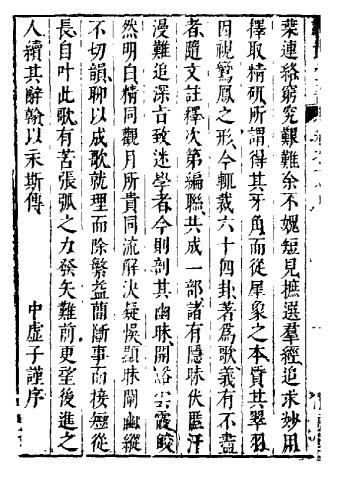 葉連絡窮究艱難余不愧短見摭選羣經追求妙用
擇取精研所謂得其牙角而從犀象之本質其翠羽
因視鸞鳳之形今輒裁六十四卦著為歌義有不盡
者隨文註釋次第編聯共成一部諸有隱昧伏匿汗
漫難追深古致迷學者今則剖其幽昧開谿雲霞皎
然明白精同觀月所貴同流解決疑悞顯昧闡幽縱
不切韻聊以成歌就理而除繁益簡斷事而接短從
長自叶此歌有苦張弧之力發矢難前更望後進之
人續其辭翰以永斯傳
中虛子謹序